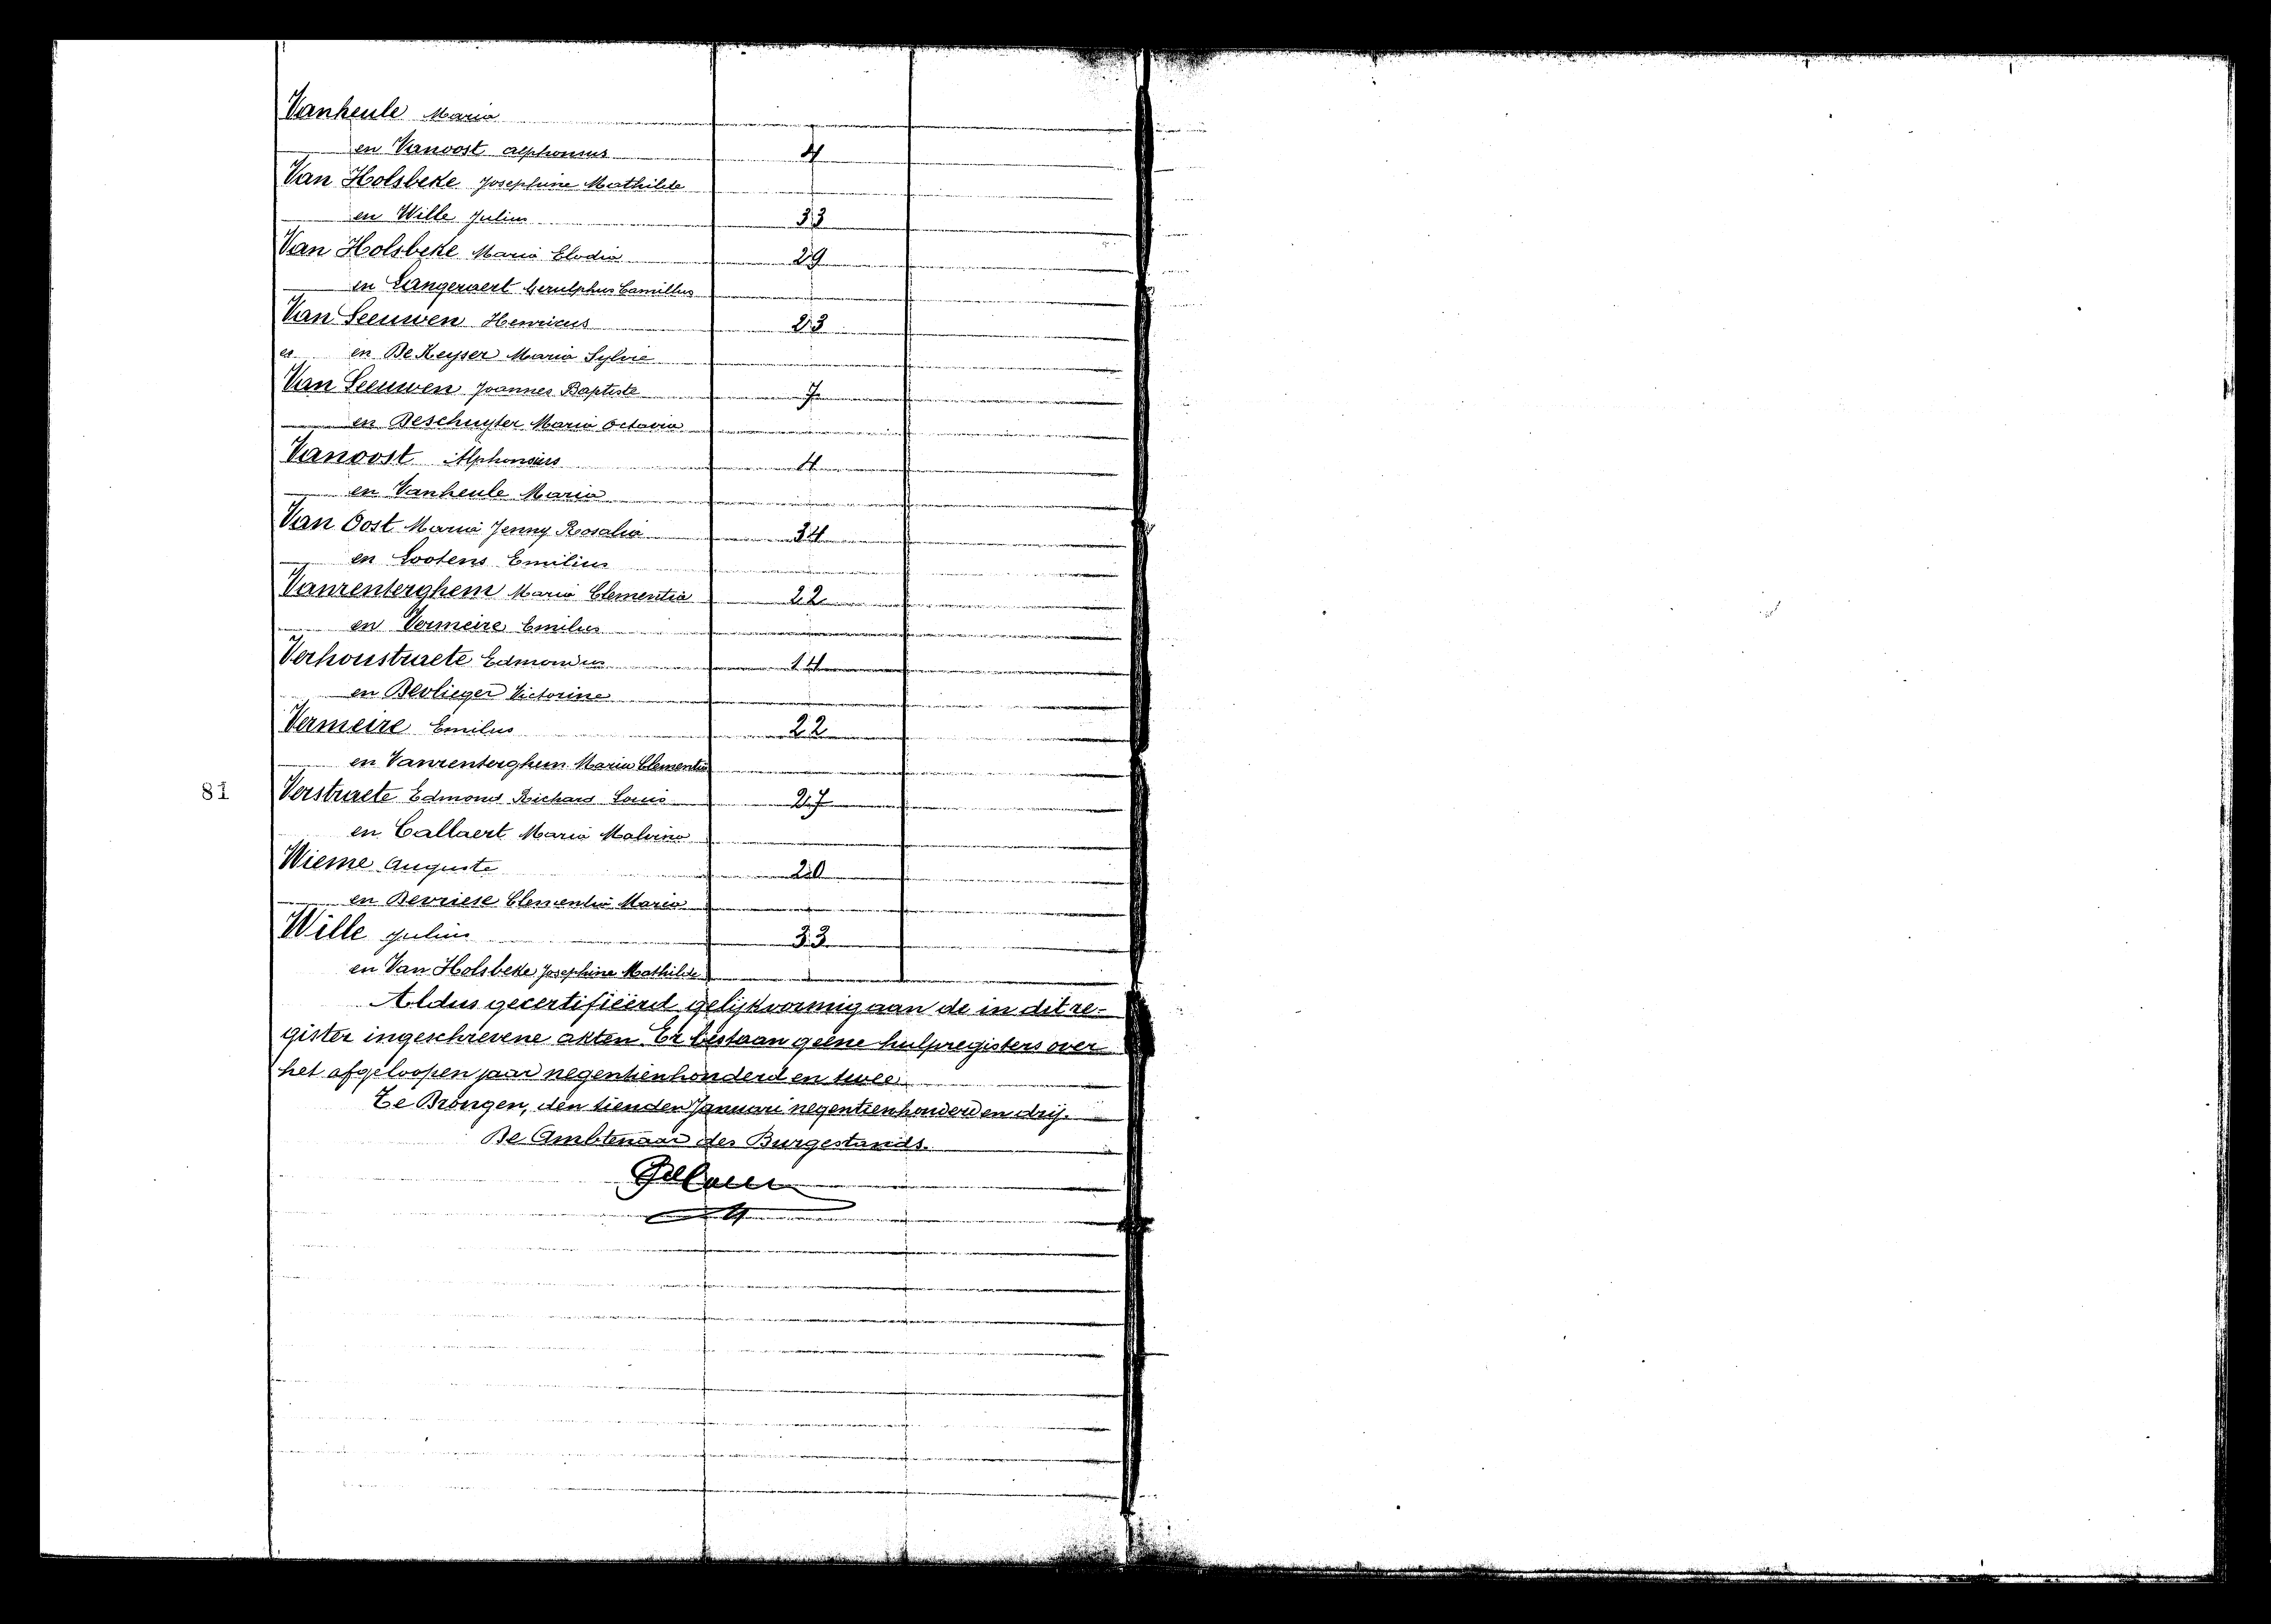 Vanheule Maria
en Vanoost Alphonsus 4
Van Holsbeke Josephine Mathilde
en Wille Julius 33
Van Holsbeke Maria Elodia 29
en Langeraert Gerulphus Camillus
Van Leeuwen Henricus 23
en De Keyser Maria Sylvie
Van Leeuwen Joannes Baptiste 7
en Deschuyter Maria Octavia
Vanoost Alphonsius 4
en Vanheule Maria
Van Oost Maria Jenny Rosalia 34
en Lootens Emilius
Vanrenterghem Maria Clementia 22
en Vermeire Emilus
Verhoustraete Edmondus 14
en Devlieger Victorine
Vermeire Emilus 22
en Vanrenterghem Maria Clementia
81 Verstraete Edmond Richard Louis 27
en Callaert Maria Malvina
Wieme Auguste 20
en Devriese Clementia Maria
Wille Julius 33
en Van Holsbeke Josephine Mathilde
Aldus gecertifiëerd gelijkvormig aan de in dit re-
gister ingeschrevene akten. Er bestaan geene hulpregisters over
het afgeloopen jaar negentienhonderd en twee.
Te Drongen, den tienden Januari negentienhonderd en drij.
De Ambtenaar des Burgestands.